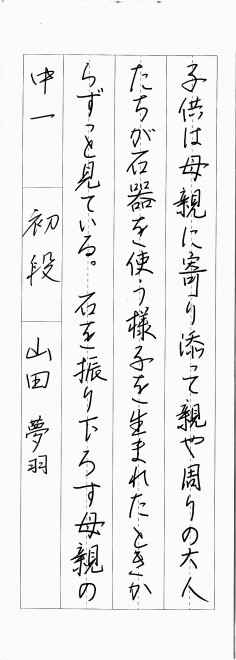 子供は母親に寄り添って親や周りの大人
たちが石器を使う様子を生まれたときか
らずっと見ている。石を振り下ろす母親の
中一 初段 山田 夢羽